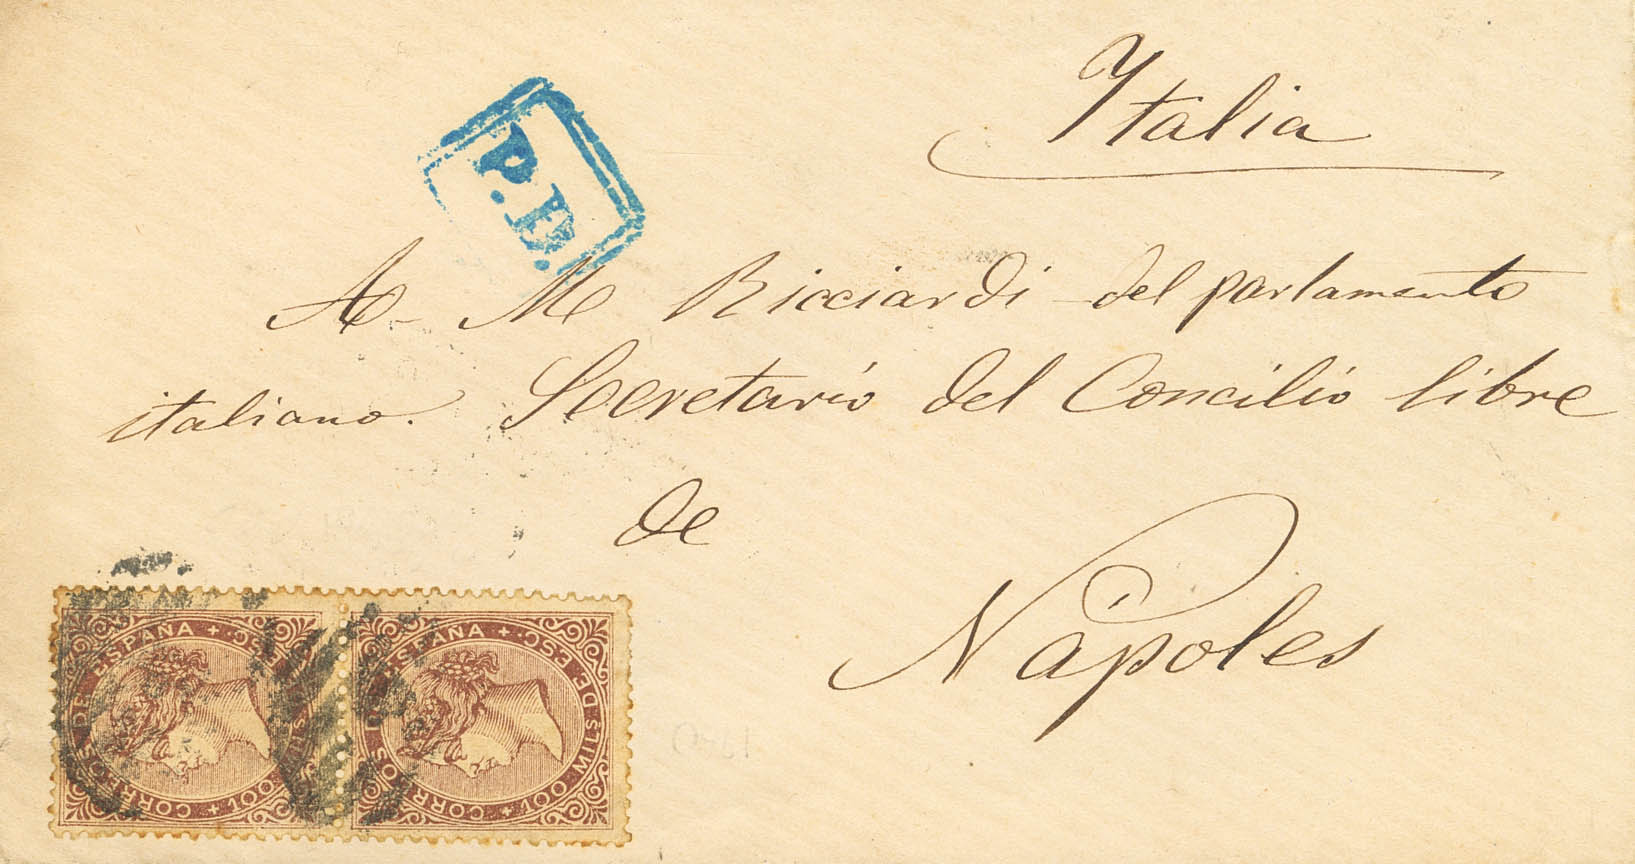 Italia
P.D.
A M Ricciardi del parlamento
italiano. Secretario del Concilio libre
de
Nápoles
CORREOS DE ESPAÑA + 100 MILS. DE ESC.
CORREOS DE ESPAÑA + 100 MILS. DE ESC.